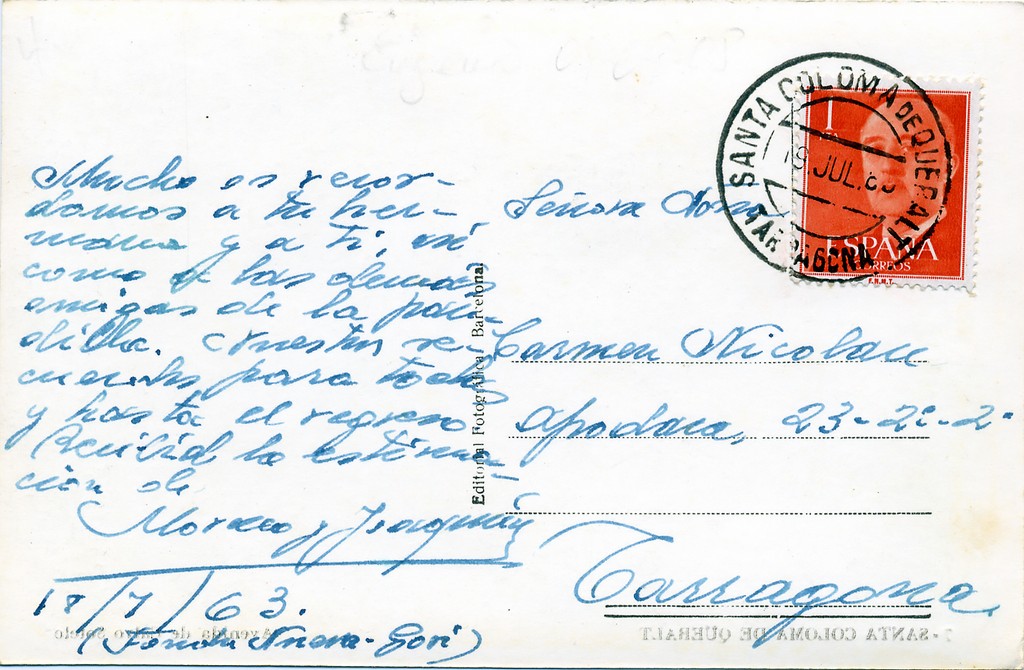 Mucho os recor-
damos a tu her-
mana y a ti, así
como a las demas
amigas de la pan-
dilla. Nuestros re-
cuerdos para todas
y hasta el regreso
Recibid la estima-
ción de
y Joaquin
18/7/63.
(Fonda Nueva-Gori)
Editorial Fotográfica / Barcelona
SANTA COLOMA DE QUERALT
JUL. 63
TARRAGONA
1
ESPAÑA
CORREOS
F.N.M.T.
Señora
Carmen Nicolau
Apodaca, 23-2º-2ª
Tarragona.
7-SANTA COLOMA DE QUERALT
Avenida de Calvo Sotelo